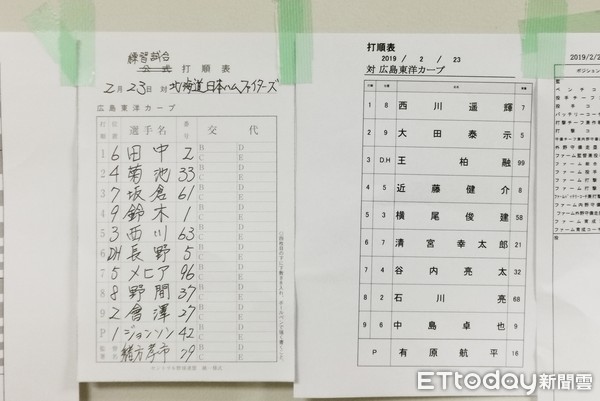 練習試合
公式 打順表
2月23日 対 北海道日本ハムファイターズ
広島東洋カープ
打順 位置 選手名 番号 交代
1 6 田中 2 B C D E
2 4 菊池 33 B C D E
3 7 坂倉 61 B C D E
4 9 鈴木 1 B C D E
5 3 西川 63 B C D E
6 DH 長野 5 B C D E
7 5 メヒア 96 B C D E
8 8 野間 37 B C D E
9 2 會澤 27 B C D E
P 1 ジョンソン 42 B C D E
監督 緒方孝市 79
打順表
2019 / 2 / 23
対 広島東洋カープ
1 8 西川遥輝 7
2 9 大田泰示 5
3 D.H 王柏融 99
4 5 近藤健介 8
5 3 横尾俊建 58
6 7 清宮幸太郎 21
7 4 谷内亮太 32
8 2 石川亮 68
9 6 中島卓也 9
P 有原航平 16
2019/2/2
ポジション
ETtoday新聞雲